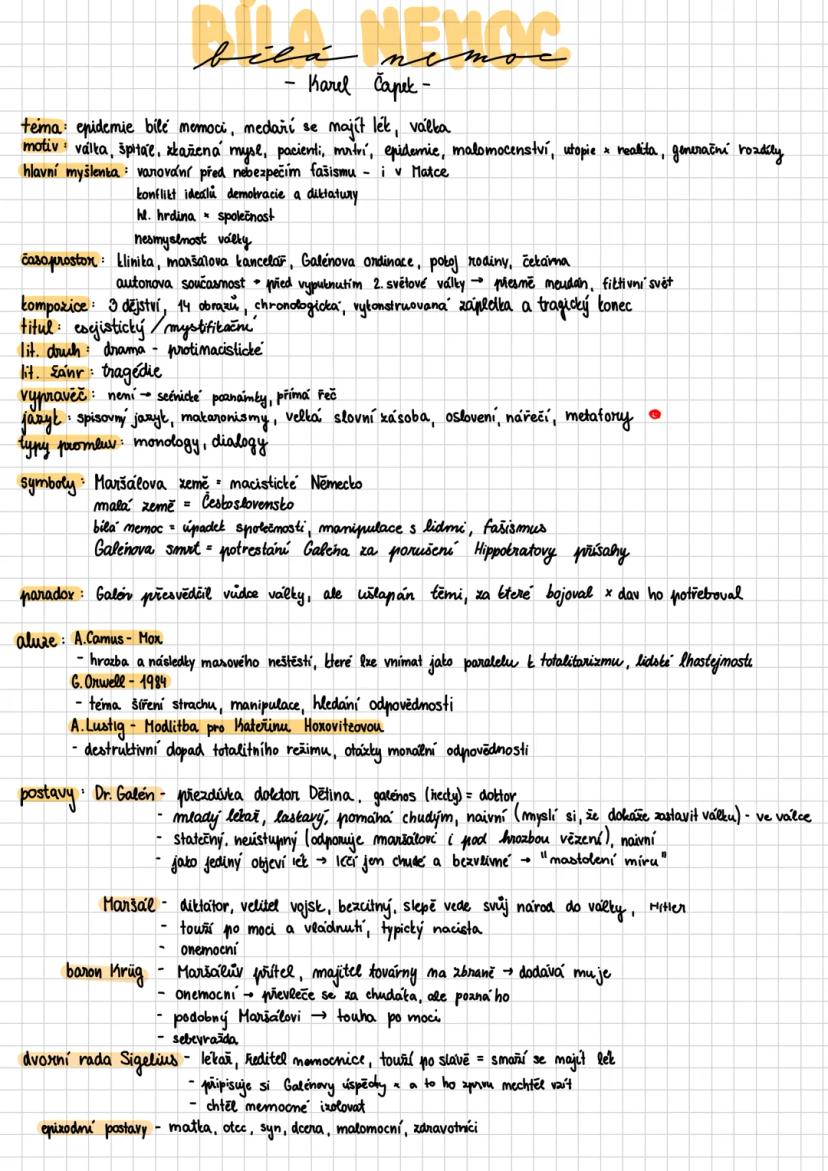 BÍLA NEMOC
bílá nemoc
- Karel Čapek -
téma: epidemie bílé nemoci, nedaří se najít lék, válka
motiv: válka, špitál, zkažená mysl, pacienti, mrtví, epidemie, malomocenství, utopie × realita, generační rozdíly
hlavní myšlenka: varování před nebezpečím fašismu - i v Matce
konflikt ideálů demokracie a diktatury
hl. hrdina × společnost
nesmyslnost války
časoprostor: klinika, maršálova kancelář, Galénova ordinace, pokoj rodiny, čekárna
autorova současnost • před vypuknutím 2. světové války → přesně neudán, fiktivní svět
kompozice: 3 dějství, 14 obrazů, chronologická, vykonstruovaná zápletka a tragický konec
titul: esejistický / mystifikační
lit. druh: drama - protinacistické
lit. žánr: tragédie
vypravěč: není → scénické poznámky, přímá řeč
jazyk: spisovný jazyk, makaronismy, velká slovní zásoba, oslovení, nářečí, metafory
typy promluv: monology, dialogy
symboly: Maršálova země = nacistické Německo
malá země = Československo
bílá nemoc = úpadek společnosti, manipulace s lidmi, fašismus
Galénova smrt = potrestání Galéna za porušení Hippokratovy přísahy
paradox: Galén přesvědčil vůdce války, ale ušlapán těmi, za které bojoval × dav ho potřeboval
aluze: A.Camus - Mor
- hrozba a následky masového neštěstí, které lze vnímat jako paralelu k totalitarizmu, lidské lhostejnosti
G.Orwell - 1984
- téma šíření strachu, manipulace, hledání odpovědnosti
A.Lustig - Modlitba pro Kateřinu Horovitzovou
- destruktivní dopad totalitního režimu, otázky morální odpovědnosti
postavy: Dr. Galén - přezdívka doktor Dětina, galénos (řecky) = doktor
- mladý lékař, laskavý, pomáhá chudým, naivní (myslí si, že dokáže zastavit válku) - ve válce
- statečný, neústupný (odporuje maršálovi i pod hrozbou vězení), naivní
- jako jediný objeví lék → léčí jen chudé a bezvlivné → "nastolení míru"
Maršál - diktátor, velitel vojsk, bezcitný, slepě vede svůj národ do války, Hitler
- touží po moci a vládnutí, typický nacista
- onemocní
baron Krüg - Maršálův přítel, majitel továrny na zbraně → dodává mu je
- onemocní → převleče se za chudáka, ale pozná ho
- podobný Maršálovi → touha po moci
- sebevražda
dvorní rada Sigelius - lékař, ředitel nemocnice, touží po slávě = snaží se najít lék
- připisuje si Galénovy úspěchy × a to ho zprvu nechtěl vzít
- chtěl nemocné izolovat
epizodní postavy - matka, otec, syn, dcera, malomocní, zdravotníci